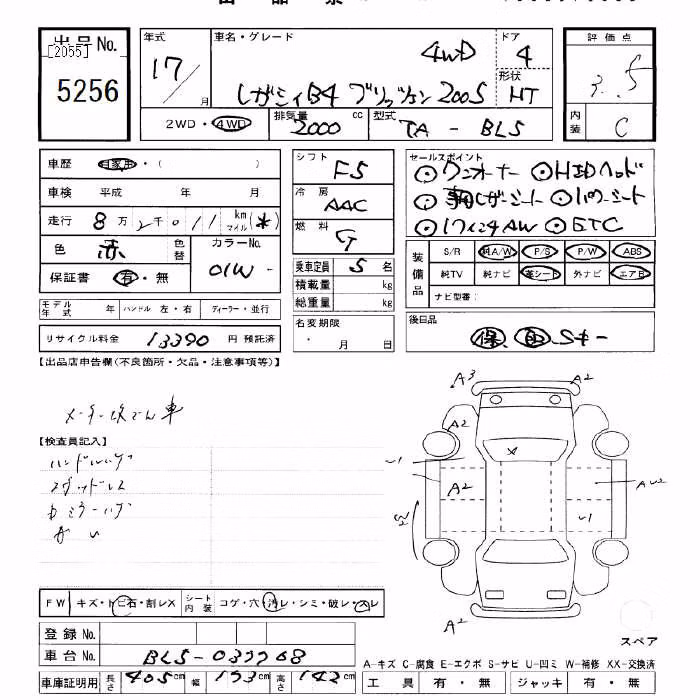 出品No.
[2055]
5256
年式 17/ 月
車名・グレード 4WD
レガシィB4 ブリッツェン2005
ドア 4
形状 HT
2WD・4WD 排気量 2000 cc 型式 TA - BL5
評価点
3.5
内装 C
車歴 自家用・( )
車検 平成 年 月
走行 8万2千011 km マイル (*)
色 赤 色替 カラーNo. 01W -
保証書 有・無
モデル年式 年 ハンドル 左・右 ディーラー・並行
リサイクル料金 13390 円 預託済
シフト F5
冷房 AAC
燃料 G
乗車定員 5 名
積載量 kg
総重量 kg
名変期限
・ 月 日
セールスポイント
ワンオーナー HIDヘッド
革レザーシート パワーシート
17インチAW ETC
装備品 S/R 純A/W P/S P/W ABS
純TV 純ナビ 革シート 外ナビ エアB
ナビ型番:
後日品
保 取 Sキー
【出品店申告欄(不良箇所・欠品・注意事項等)】
メーター改ざん車
【検査員記入】
A3 A2
A2
A2
A2
FW キズ・トビ石・割レX シート内装 コゲ・穴・汚レ・シミ・破レ・スレ
登録No.
車台No. BL5-
車庫証明用 長さ 465cm 幅 173cm 高さ 142cm
スペア
A-キズ C-腐食 E-エクボ S-サビ U-凹ミ W-補修 XX-交換済
工具 有・無 ジャッキ 有・無